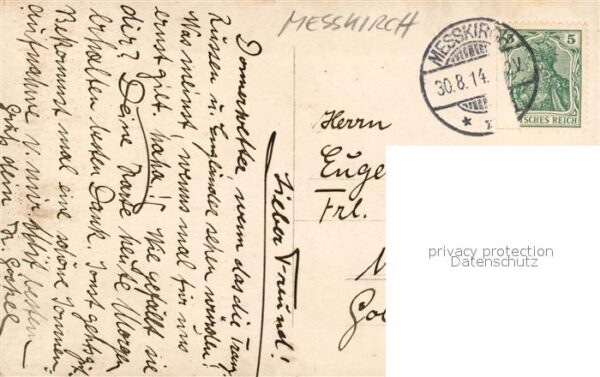 MESSKIRCH
MESSKIRCH
30.8.14.
5
DEUTSCHES REICH
Herrn
Euge
Frl.
privacy protection
Datenschutz
Lieber Freund!
Donnerwetter, wenn das die Franz.
Russen u. Engländer sehen würden!
Was meinst, wenns mal für uns
ernst gilt. haha! Wie gefällt sie
dir? Deine Karte heute Morgen
erhalten besten Dank. Sonst gehts gut.
Bekommst mal eine schöne Sonnen-
aufnahme v. mir.
Gruß dein Fr.